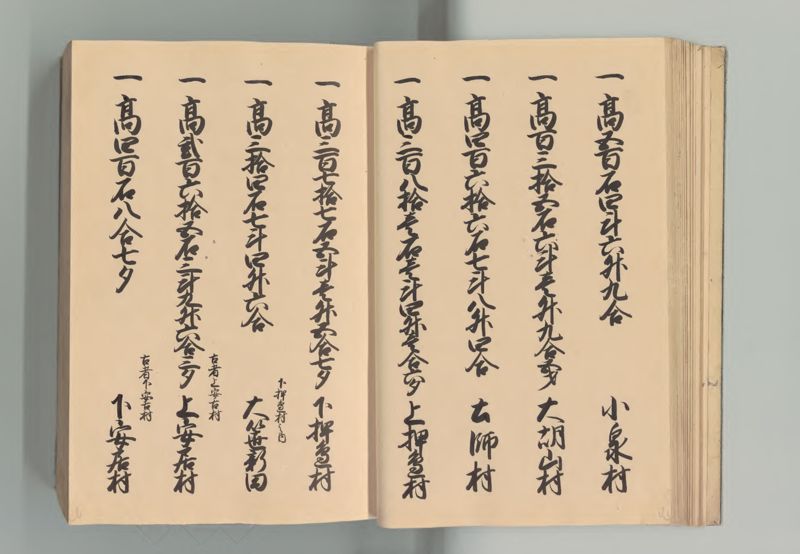 一 高五百石四斗六升九合 小泉村
一 高百三拾五石六斗壱升九合弐夕 大胡山村
一 高四百六拾六石七斗八升四合 土師村
一 高三百八拾壱石壱斗四升壱合 上押垂村
一 高三百七拾七石五斗壱升五合七夕 下押垂村
下押垂村之内
一 高三拾四石七斗四升六合 大
新田
古者上安古村
一 高弐百六拾五石三斗九升六合三夕 上安居村
古者下安古村
一 高四百石八合七夕 下安居村